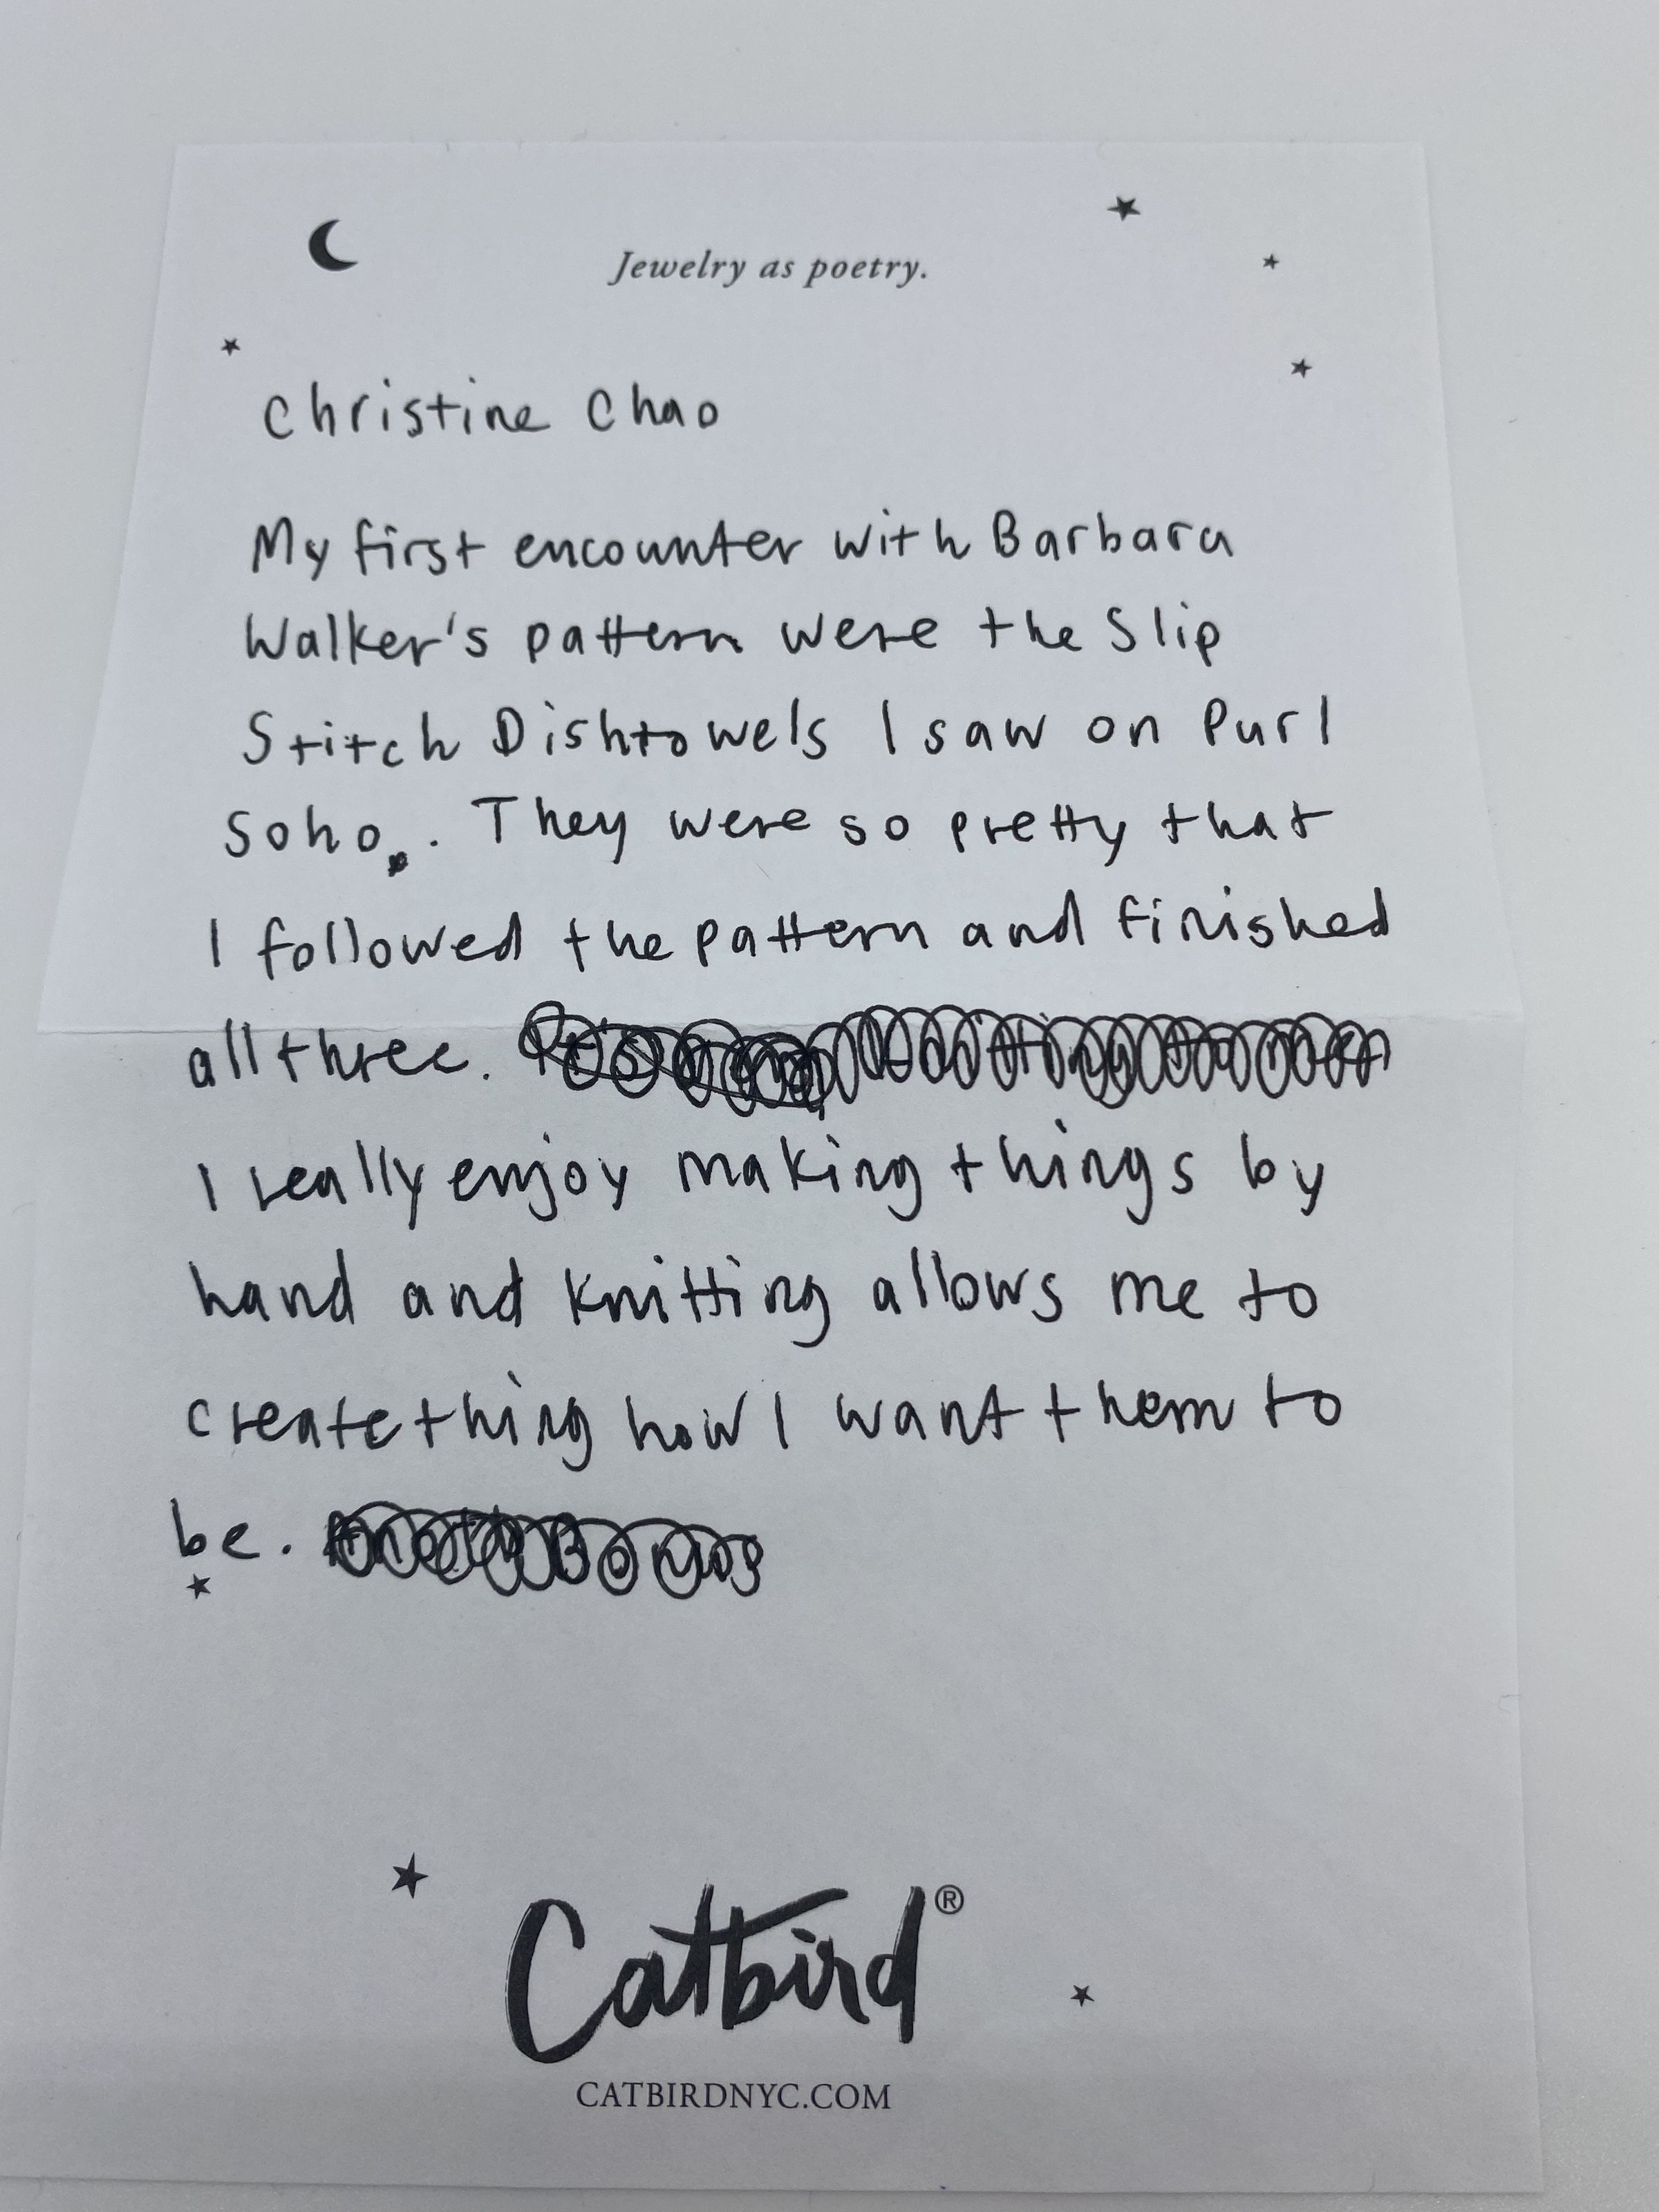 Jewelry as poetry.
Christine Chao
My first encounter with Barbara
Walker's pattern were the Slip
Stitch Dishtowels I saw on Purl
Soho. They were so pretty that
I followed the pattern and finished
all three.
I really enjoy making things by
hand and knitting allows me to
create thing how I want them to
be.
Catbird®
CATBIRDNYC.COM